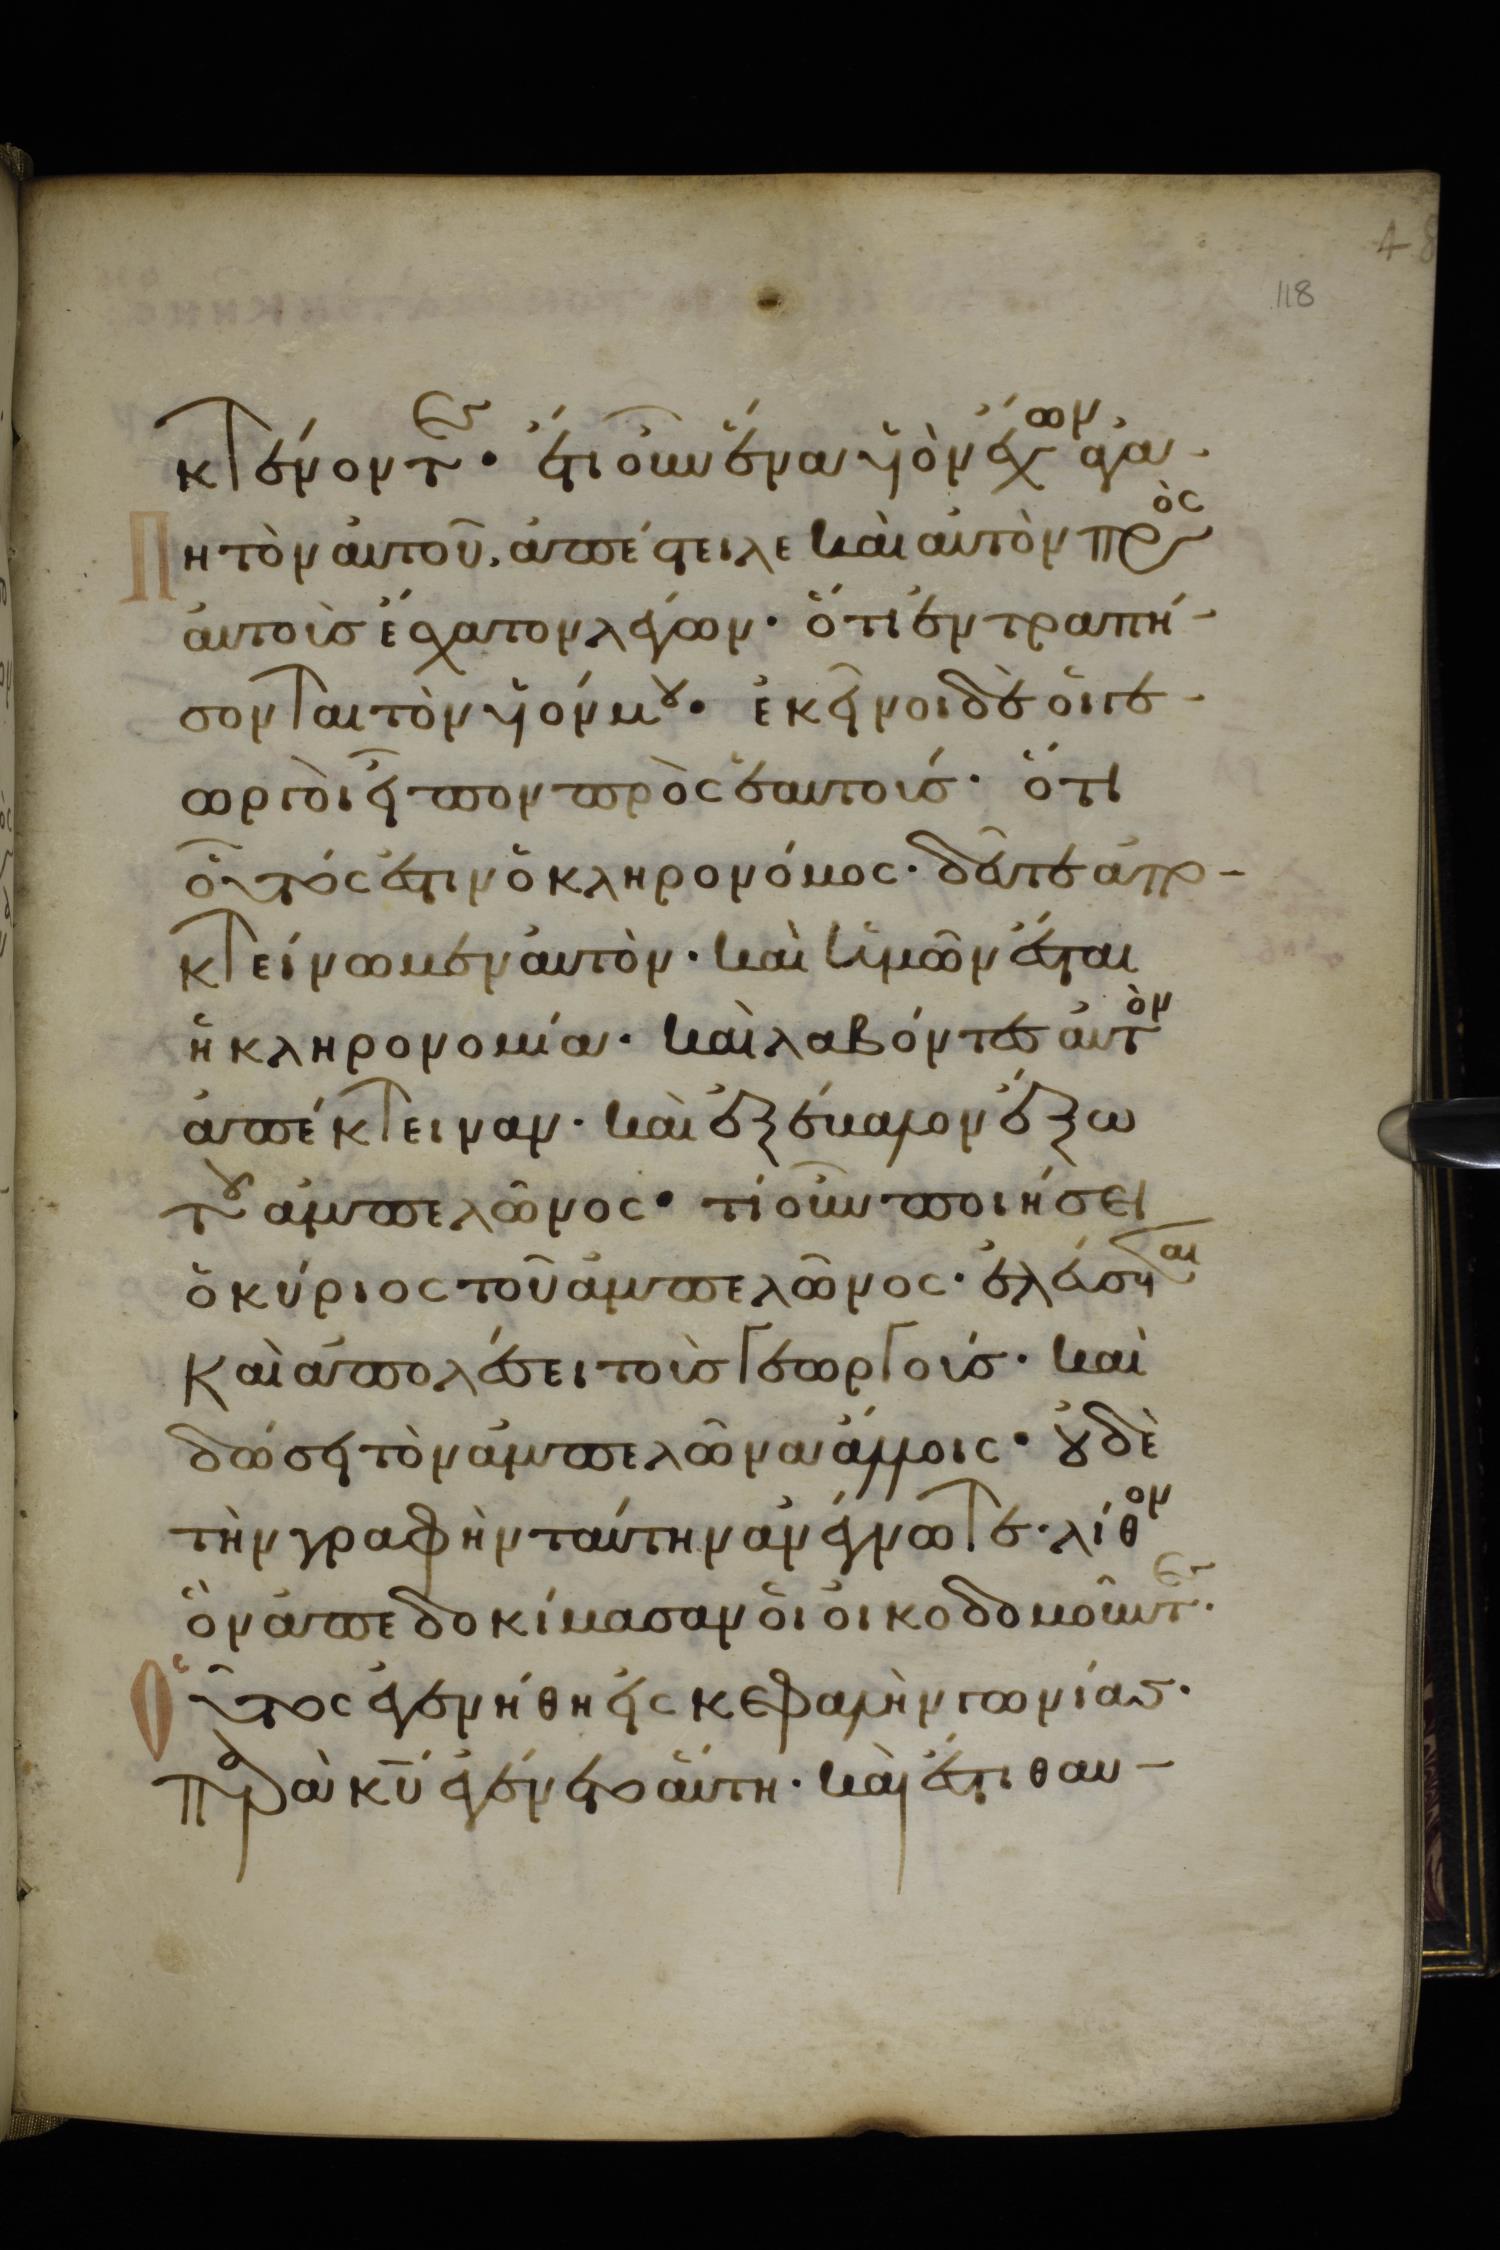 118
κτένοντες· ἔτι οὖν ἕνα υἱὸν ἔχων ἀγα-
πητὸν αὐτοῦ, ἀπέστειλε καὶ αὐτὸν πρὸς
αὐτοὺς ἔσχατον λέγων· ὅτι ἐντραπή-
σονται τὸν υἱόν μου· ἐκεῖνοι δὲ οἱ γε-
ωργοὶ εἶπον πρὸς ἑαυτούς· ὅτι
οὗτός ἐστιν ὁ κληρονόμος· δεῦτε ἀπο-
κτείνωμεν αὐτὸν· καὶ ἡμῶν ἔσται
ἡ κληρονομία· καὶ λαβόντες αὐτὸν
ἀπέκτειναν· καὶ ἐξέβαλον ἔξω
τοῦ ἀμπελῶνος· τί οὖν ποιήσει
ὁ κύριος τοῦ ἀμπελῶνος· ἐλεύσεται
καὶ ἀπολέσει τοὺς γεωργούς· καὶ
δώσει τὸν ἀμπελῶνα ἄλλοις· οὐδὲ
τὴν γραφὴν ταύτην ἀνέγνωτε· λίθον
ὃν ἀπεδοκίμασαν οἱ οἰκοδομοῦντες·
οὗτος ἐγενήθη εἰς κεφαλὴν γωνίας·
παρὰ κυ ἐγένετο αὕτη· καὶ ἔστι θαυ-